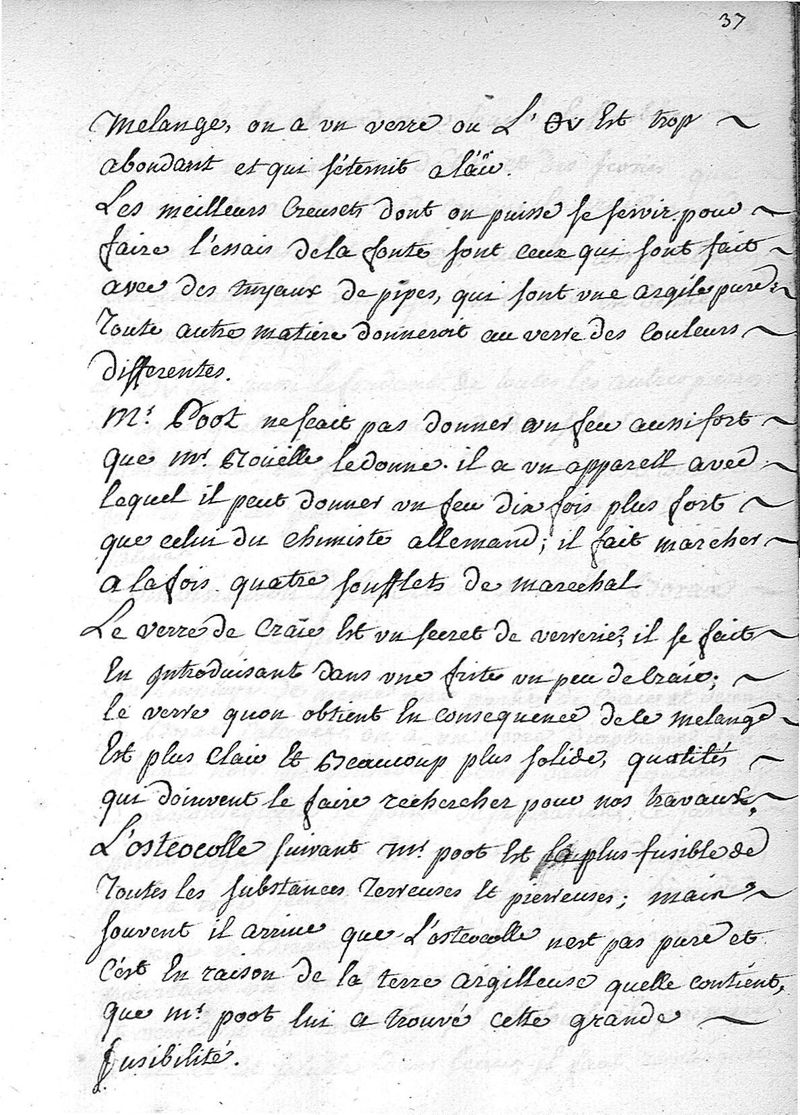 37
melange, on a vn verre ou L' Est trop
abondant et qui s'éternit a l'aïr.
Les meilleurs Creusets dont on puisse se servir pour
faire l'essais dela fonte sont ceux qui sont fait
avec des tuyaux de pipes, qui sont vne argile pure;
Toute autre matiere donneroit au verre des Couleurs
differentes.
Mr. Poot ne scait pas donner vn feu aussi fort
que mr. Roüelle ledonne. il a vn appareil avec
lequel il peut donner vn feu dix fois plus fort
que celui du chimiste allemand; il fait marcher
a la fois quatre soufflets de marechal
Le verre de Craïe Est vn secret de verrerie, il se fait
En introduisant dans vne fritte vn peu de Craie;
le verre quon obtient En consequence de le melange
Est plus Clair Et Beaucoup plus solide, qualités
qui doivent le faire rechercher pour nos travaux.
L'osteocolle suivant mr poot Est la plus fusible de
Toutes les substances Terreuses Et pierreuses; mais
souvent il arrive que L'osteocolle n'est pas pure et
C'est En raison de la terre argilleuse quelle contient,
que mr. poot lui a trouvé cette grande
fusibilité.